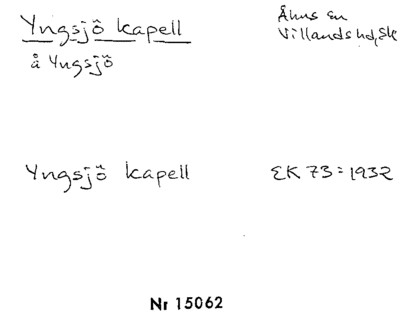 Yngsjö kapell
å Yngsjö
Åhus sn
Villands hd, Sk
Yngsjö kapell
EK 73 = 1932
Nr 15062